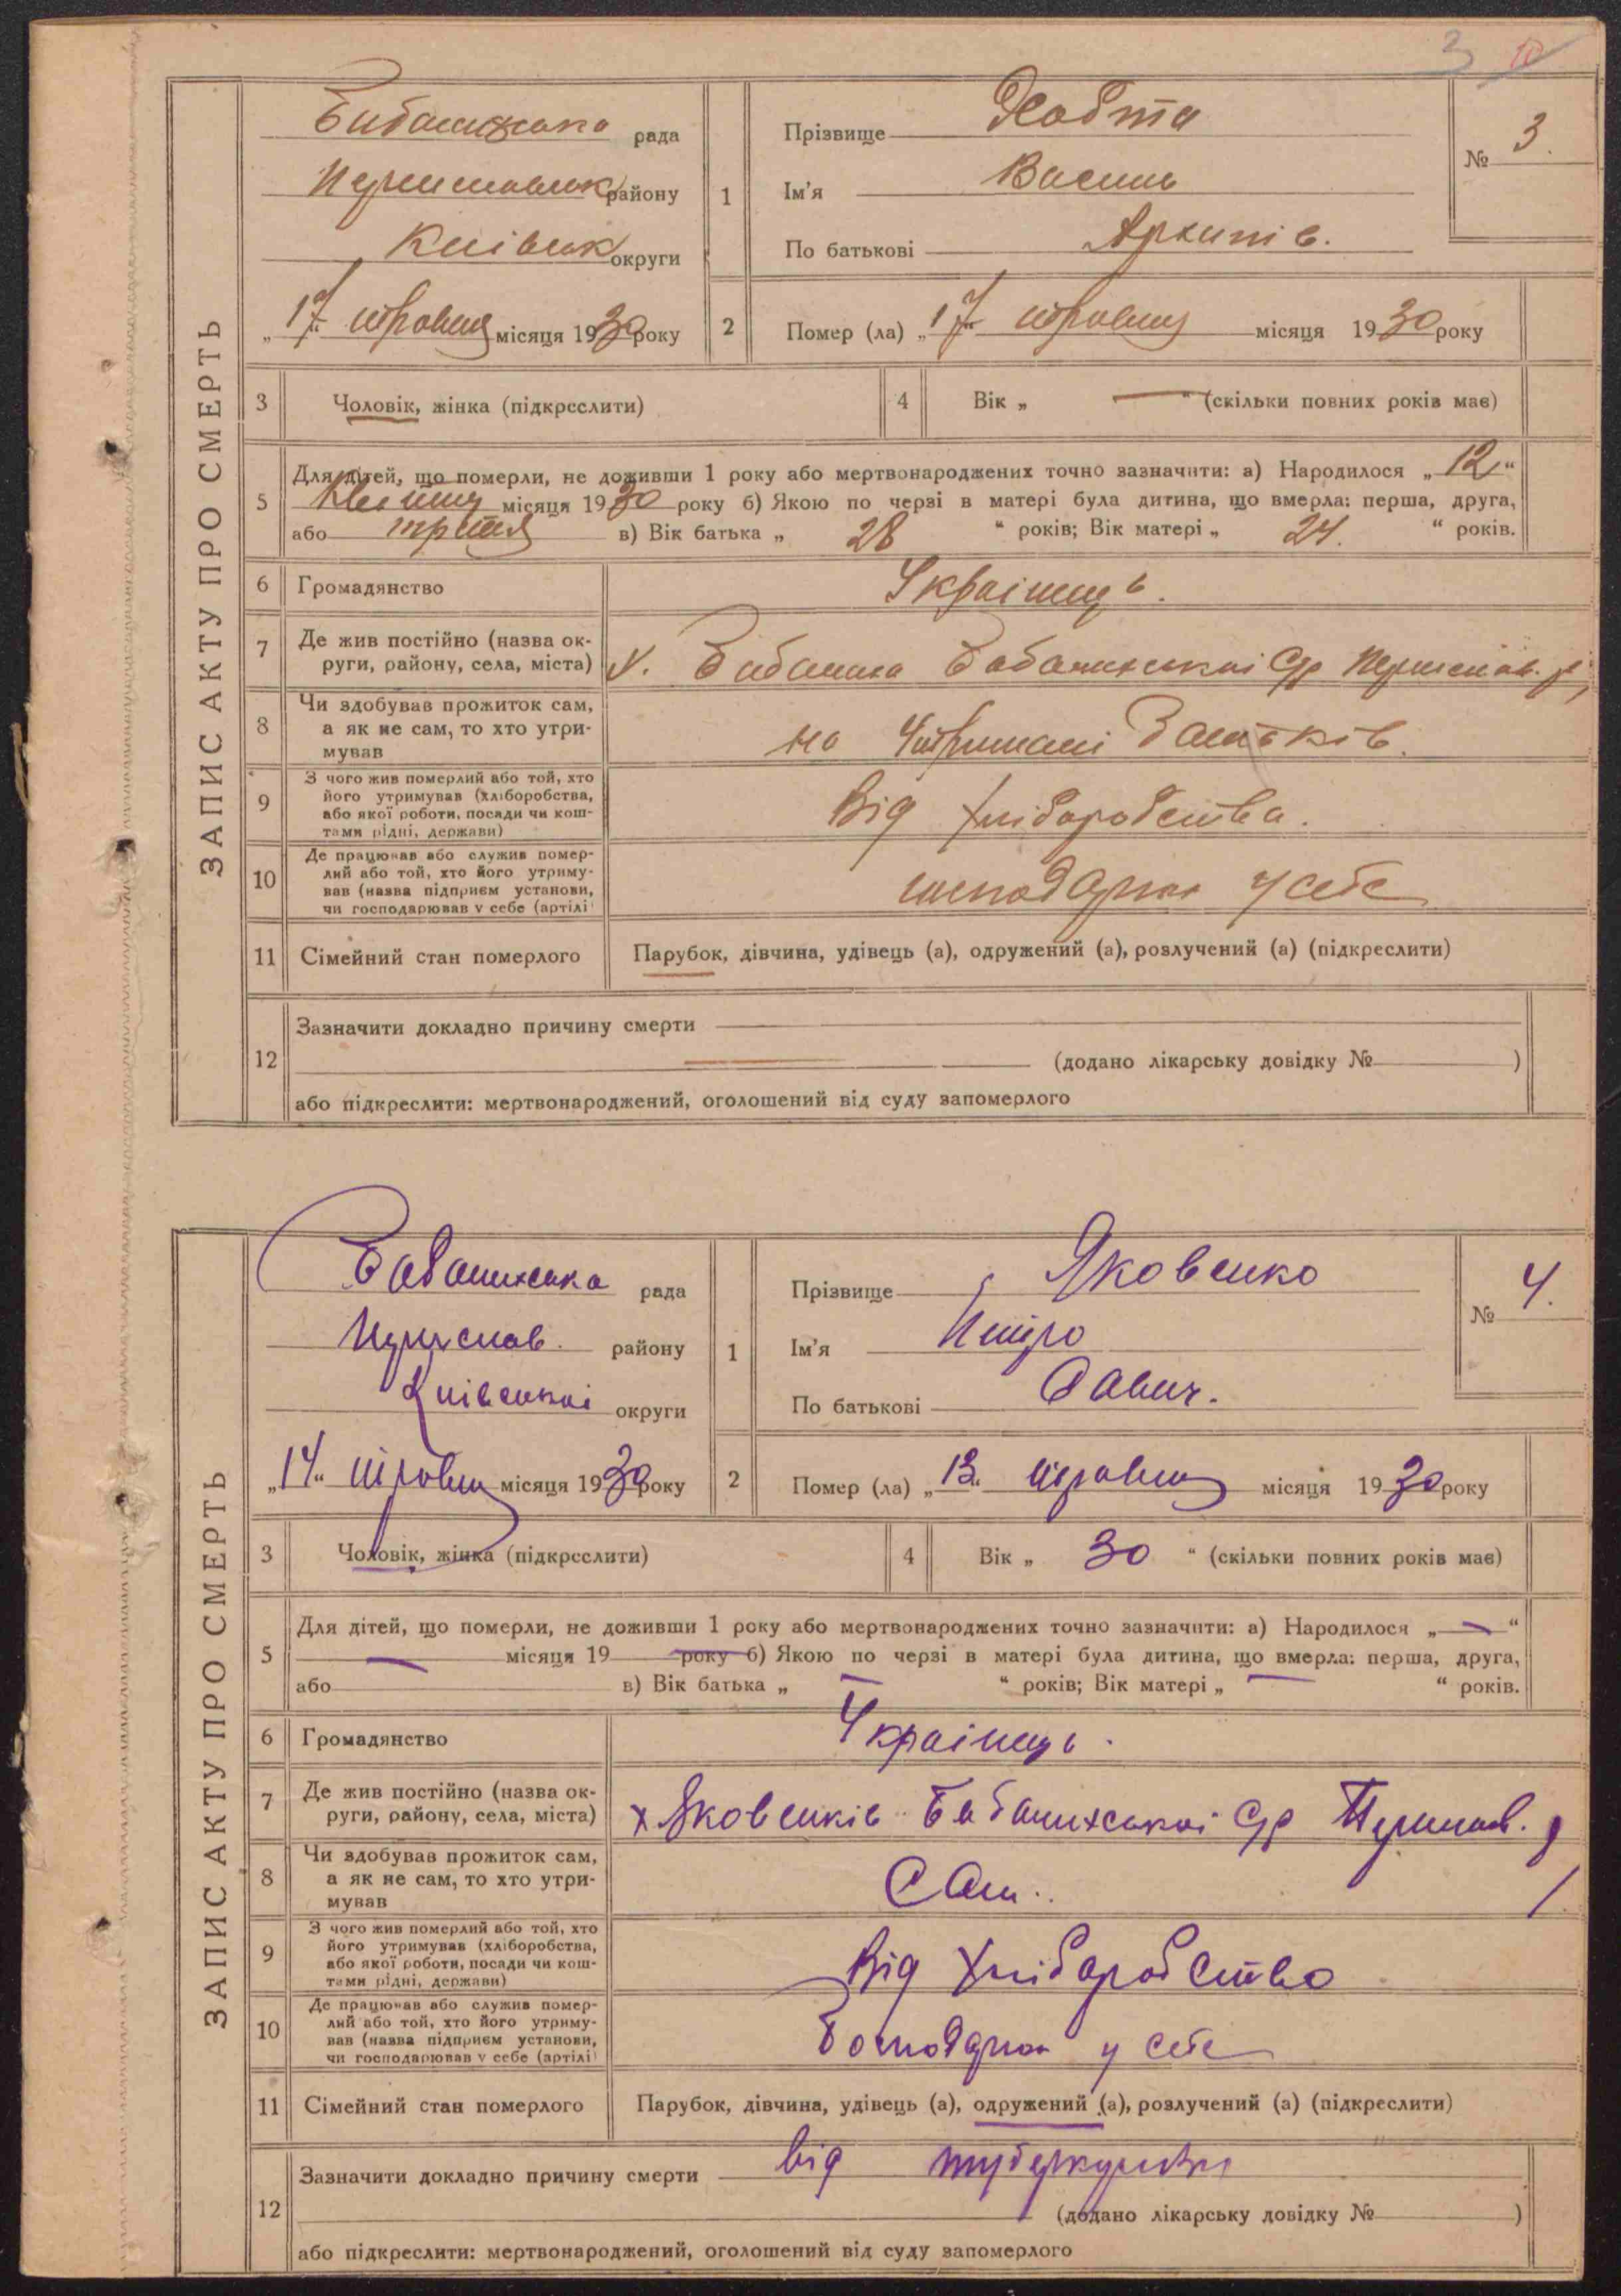 3 10
ЗАПИС АКТУ ПРО СМЕРТЬ
рада
району
Київськ округи
„17“ травня місяця 1930 року
1
Прізвище
Ім'я Василь
По батькові Архипів.
№ 3.
2
Помер (ла) „17“ травня місяця 1930 року
3 Чоловік, жінка (підкреслити)
4 Вік „ — “ (скільки повних років має)
5 Для дітей, що померли, не доживши 1 року або мертвонароджених точно зазначити: а) Народилося „12“
місяця 1930 року б) Якою по черзі в матері була дитина, що вмерла: перша, друга,
або третя в) Вік батька „ 28 “ років; Вік матері „ 24. “ років.
6 Громадянство Українець.
7 Де жив постійно (назва ок-
руги, району, села, міста) х. Бабачиха Бабачихської С/р Переяслав. р
8 Чи здобував прожиток сам,
а як не сам, то хто утри-
мував на Утриманні Батьків.
9 З чого жив померлий або той, хто
його утримував (хліборобства,
або якої роботи, посади чи кош-
тами рідні, держави) Від Хліборобства.
10 Де працював або служив помер-
лий або той, хто його утриму-
вав (назва підприєм установи,
чи господарював у себе (артілі) у себе
11 Сімейний стан померлого Парубок, дівчина, удівець (а), одружений (а), розлучений (а) (підкреслити)
12 Зазначити докладно причину смерти
(додано лікарську довідку № )
або підкреслити: мертвонароджений, оголошений від суду запомерлого
ЗАПИС АКТУ ПРО СМЕРТЬ
Бабачихська рада
Переяслав. району
Київської округи
„14“ травня місяця 1930 року
1
Прізвище Яковенко
Ім'я Петро
По батькові Савич.
№ 4.
2
Помер (ла) „13“ травня місяця 1930 року
3 Чоловік, жінка (підкреслити)
4 Вік „ 30 “ (скільки повних років має)
5 Для дітей, що померли, не доживши 1 року або мертвонароджених точно зазначити: а) Народилося „ — “
— місяця 19 року б) Якою по черзі в матері була дитина, що вмерла: перша, друга,
або в) Вік батька „ — “ років; Вік матері „ — “ років.
6 Громадянство Українець.
7 Де жив постійно (назва ок-
руги, району, села, міста) х Яковенків Бабачихської С/р Переяслав. р
8 Чи здобував прожиток сам,
а як не сам, то хто утри-
мував Сам.
9 З чого жив померлий або той, хто
його утримував (хліборобства,
або якої роботи, посади чи кош-
тами рідні, держави) Від Хліборобство
10 Де працював або служив помер-
лий або той, хто його утриму-
вав (назва підприєм установи,
чи господарював у себе (артілі) у себе
11 Сімейний стан померлого Парубок, дівчина, удівець (а), одружений (а), розлучений (а) (підкреслити)
12 Зазначити докладно причину смерти від туберкульозу
(додано лікарську довідку № )
або підкреслити: мертвонароджений, оголошений від суду запомерлого